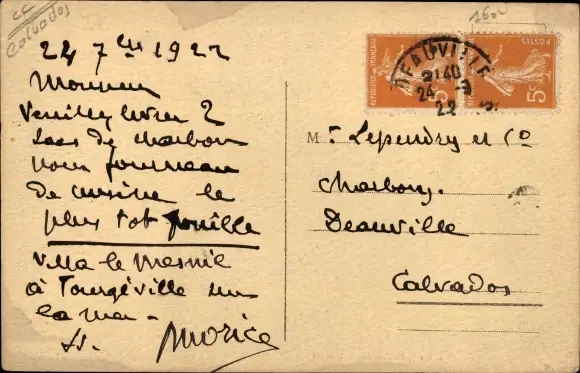 Calvados
1600
24 7bre 1922
Monsieur
Veuillez livrer 2
sacs de charbon
pour fourneau
de cuisine le
plus tot possible
Villa le Mesnil
à Tourgéville sur
la mer -
Morice
DEAUVILLE
21 40
24 - 9
22
RÉPUBLIQUE FRANÇAISE
POSTES
5c
RÉPUBLIQUE FRANÇAISE
POSTES
5c
Mr Lependry et Co
Charbons.
Deauville
Calvados